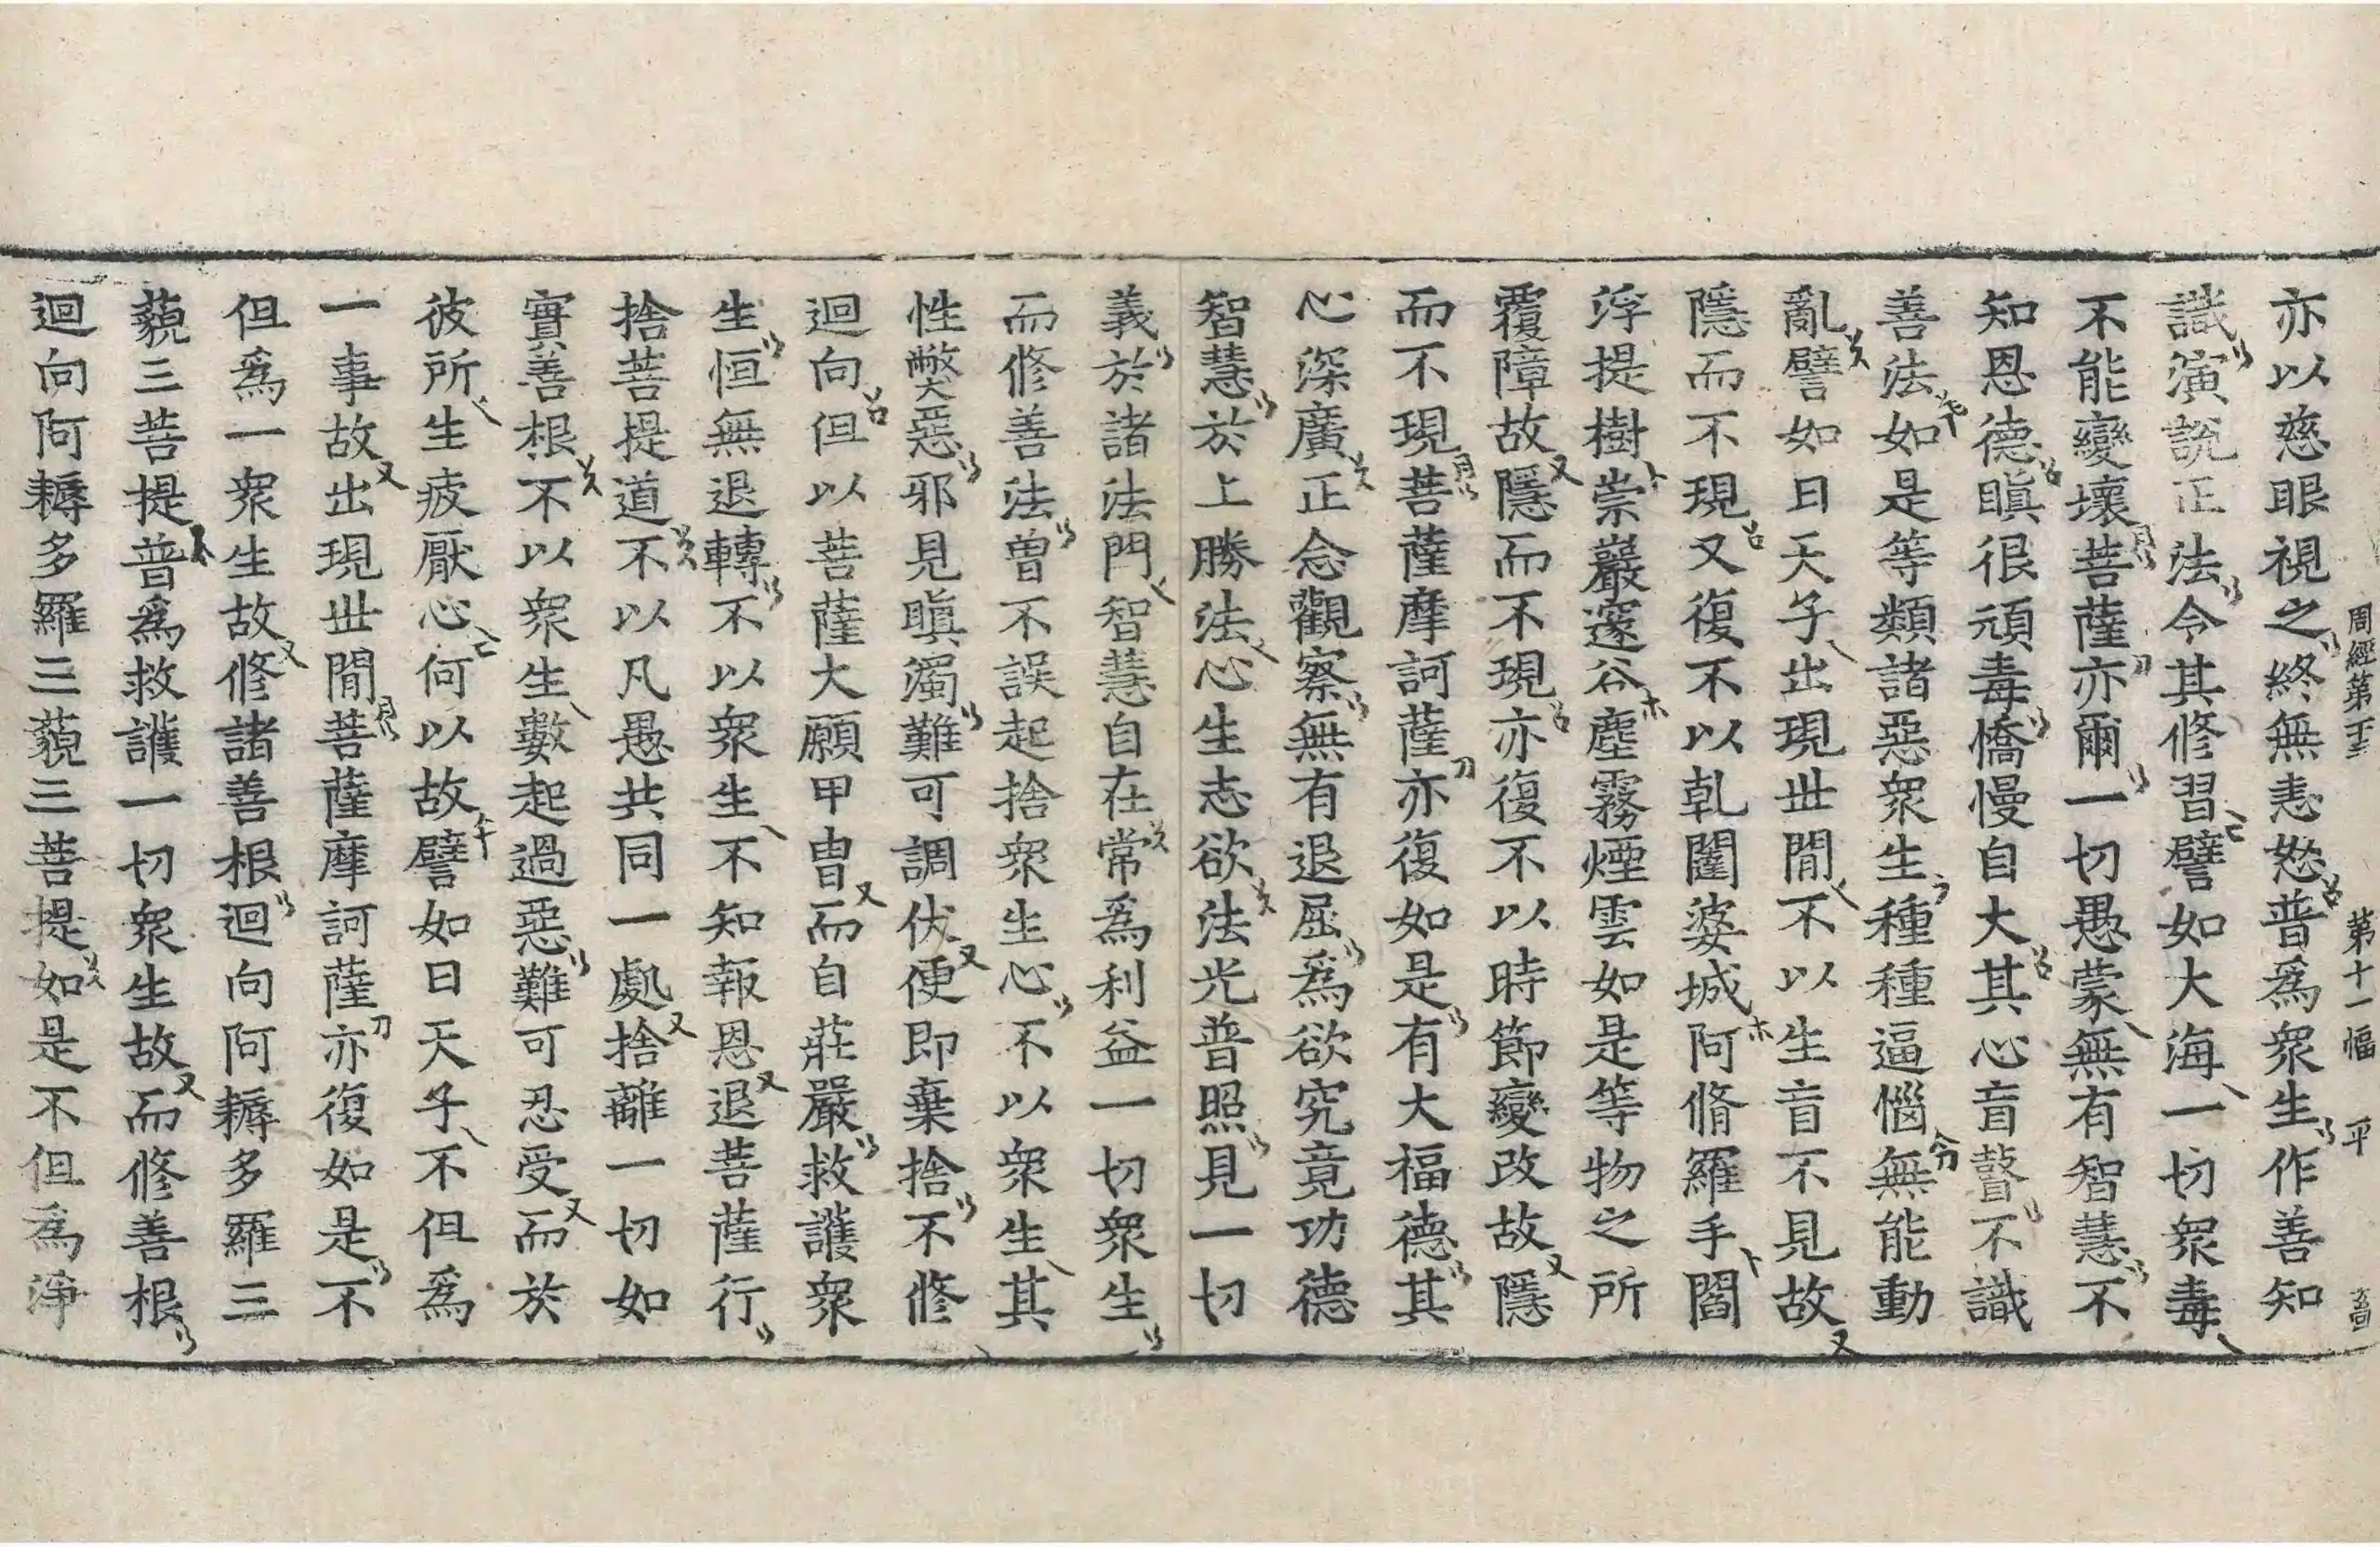 周經第二十三　第十一幅　平
亦以慈眼視之終無恚怒普爲衆生作善知
識演說正法令其修習譬如大海一切衆毒
不能變壞菩薩亦爾一切愚蒙無有智慧不
知恩德瞋很頑毒憍慢自大其心盲瞽不識
善法如是等類諸惡衆生種種逼惱無能動
亂譬如日天子出現世間不以生盲不見故
隱而不現又復不以乹闥婆城阿脩羅手閻
浮提樹崇巖邃谷塵霧煙雲如是等物之所
覆障故隱而不現亦復不以時節變改故隱
而不現菩薩摩訶薩亦復如是有大福德其
心深廣正念觀察無有退屈爲欲究竟功德
智慧於上勝法心生志欲法光普照見一切
義於諸法門智慧自在常爲利益一切衆生
而修善法曽不誤起捨衆生心不以衆生其
性弊惡邪見瞋濁難可調伏便即棄捨不修
迴向但以菩薩大願甲冑而自莊嚴救護衆
生恒無退轉不以衆生不知報恩退菩薩行
捨菩提道不以凡愚共同一處捨離一切如
實善根不以衆生數起過惡難可忍受而於
彼所生疲厭心何以故譬如日天子不但爲
一事故出現世間菩薩摩訶薩亦復如是不
但爲一衆生故修諸善根迴向阿耨多羅三
藐三菩提普爲救護一切衆生故而修善根
迴向阿耨多羅三藐三菩提如是不但爲淨